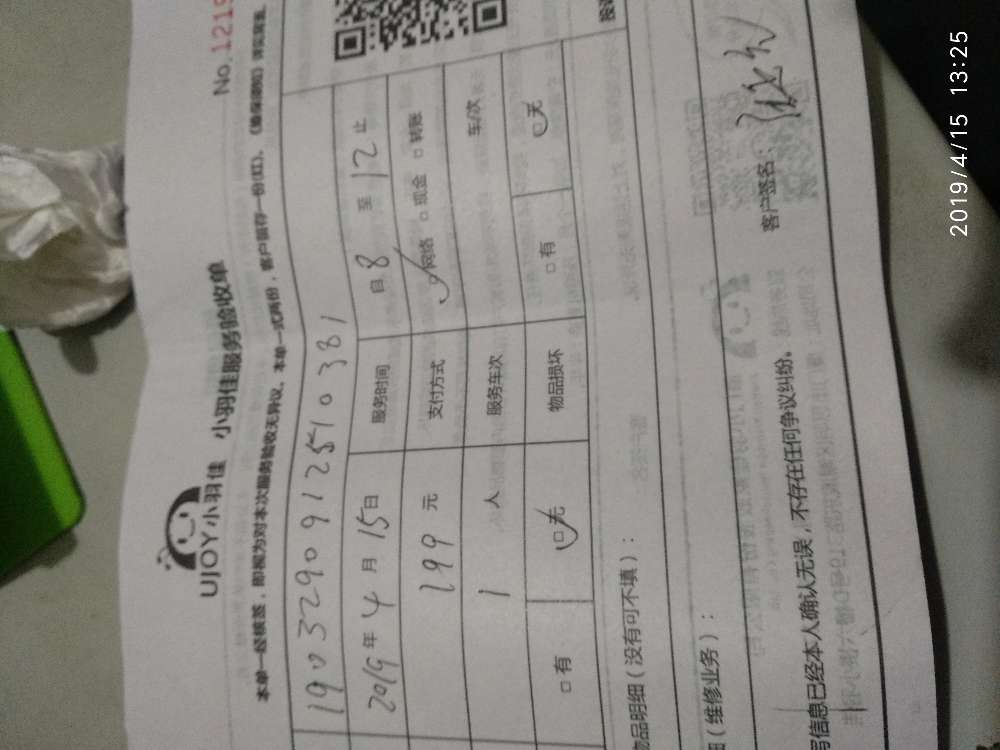 No.1219
UJOY小羽佳 小羽佳服务验收单
本单一经横签，即视为对本次服务验收无异议。本单一式两份，客户留存一份(红)、
190329091251038 1
2019年4月15日 服务时间 自8至12止
199元 支付方式 □网络 □现金 □转账
1人 服务车次 车/次
□有 □无 物品损坏 □有 □无
物品明细（没有可不填）：
（维修业务）：
信息已经本人确认无误，不存在任何争议纠纷。 客户签名：
2019/4/15 13:25